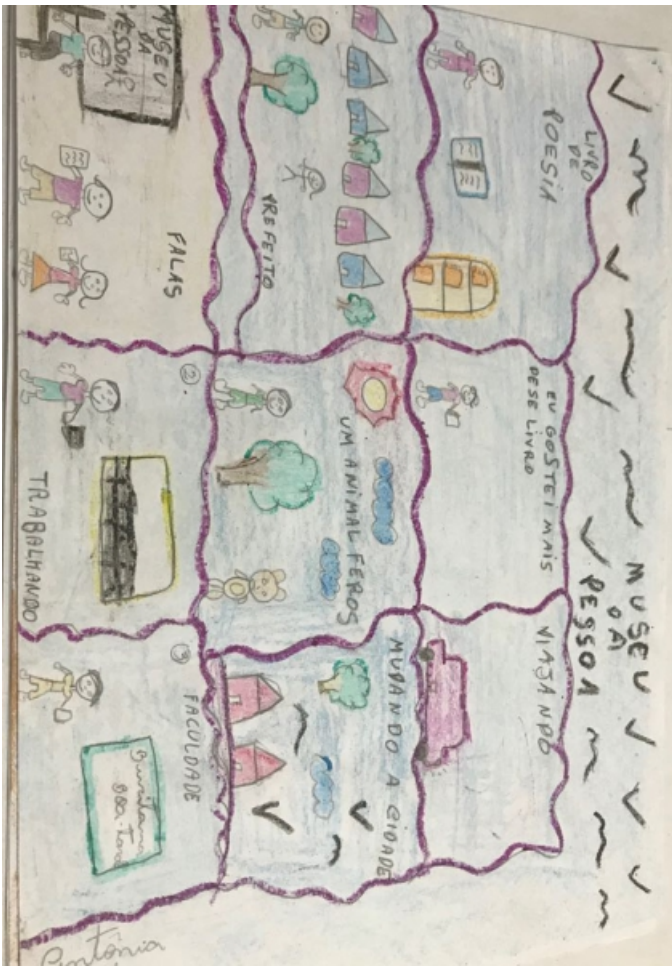 MUSEU
DA
PESSOA
LIVRO
DE
POESIA
EU GOSTEI MAIS
DESE LIVRO
VIAJANDO
PREFEITO
UM ANIMAL FEROS
MUDANDO A CIDADE
MUSEU
DA
PESSOA
FALAS
②.
TRABALHANDO
③
FACULDADE
Buritama
boa-Tarde
Antônia